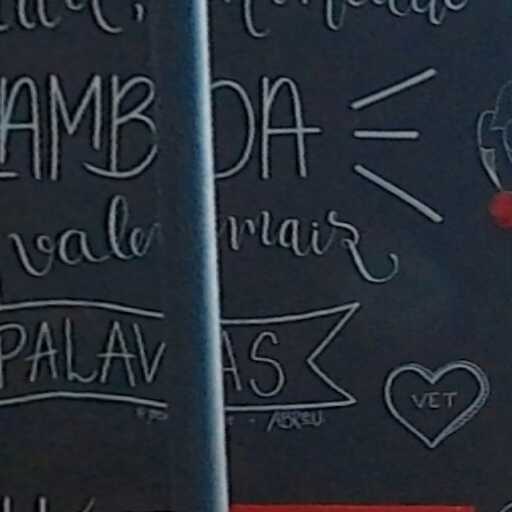 AMB DA
vale mais
PALAV AS
ABREU
VET